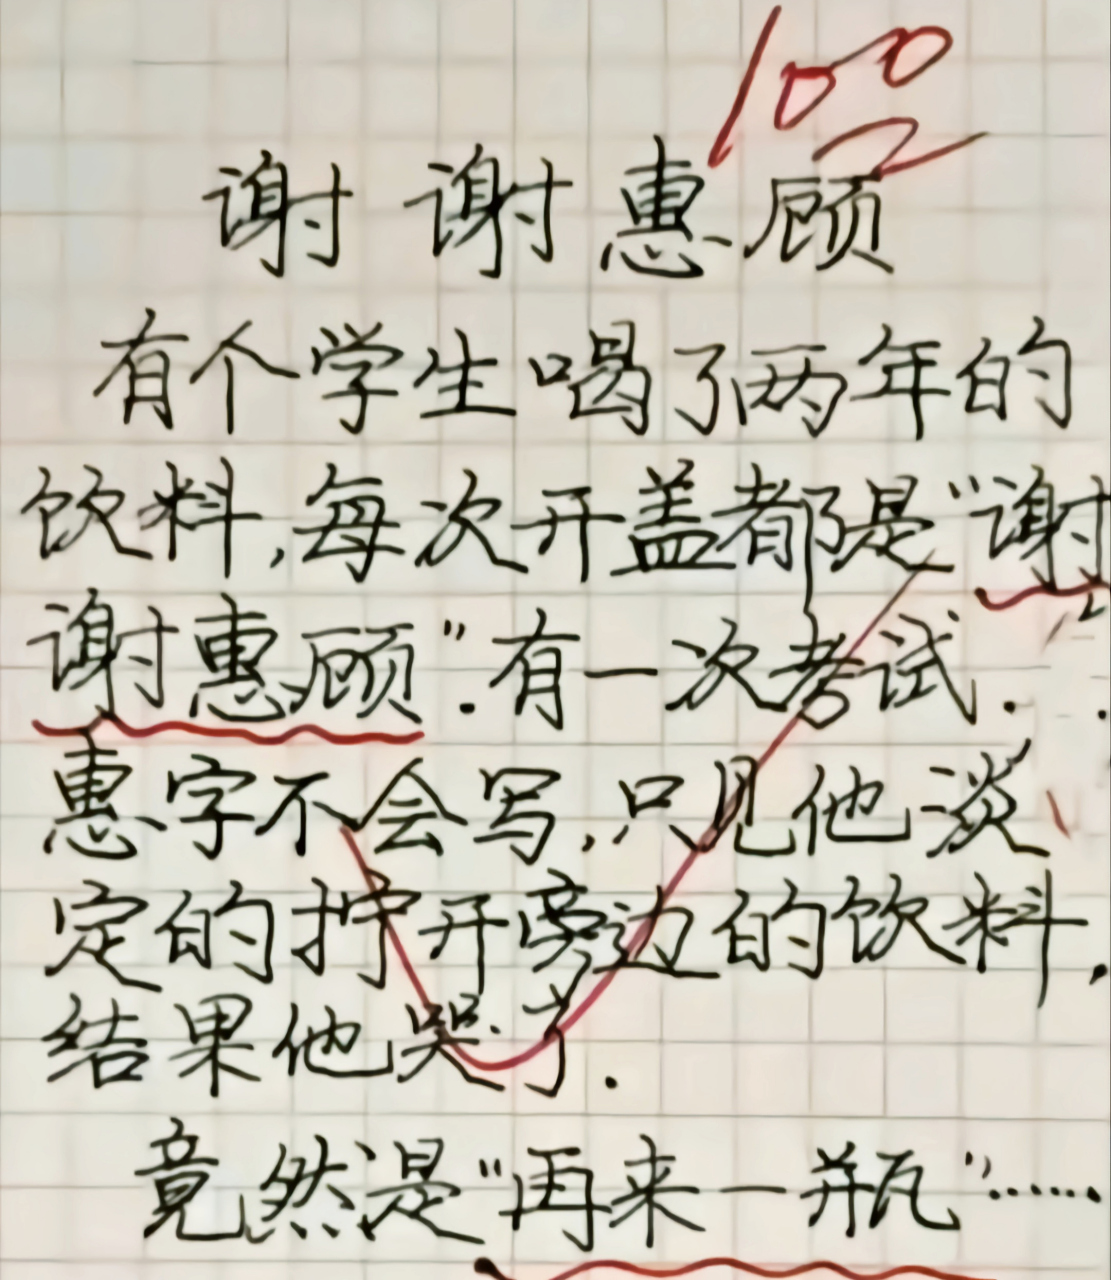 100
谢谢惠顾
有个学生喝了两年的
饮料,每次开盖都是“谢
谢惠顾”.有一次考试.
惠字不会写,只见他淡
定的拧开旁边的饮料,
结果他哭了.
竟然是“再来一瓶”......